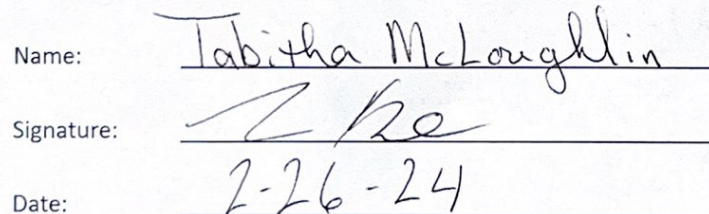 Name: Tabitha McLoughlin
Signature:
Date: 2-26-24